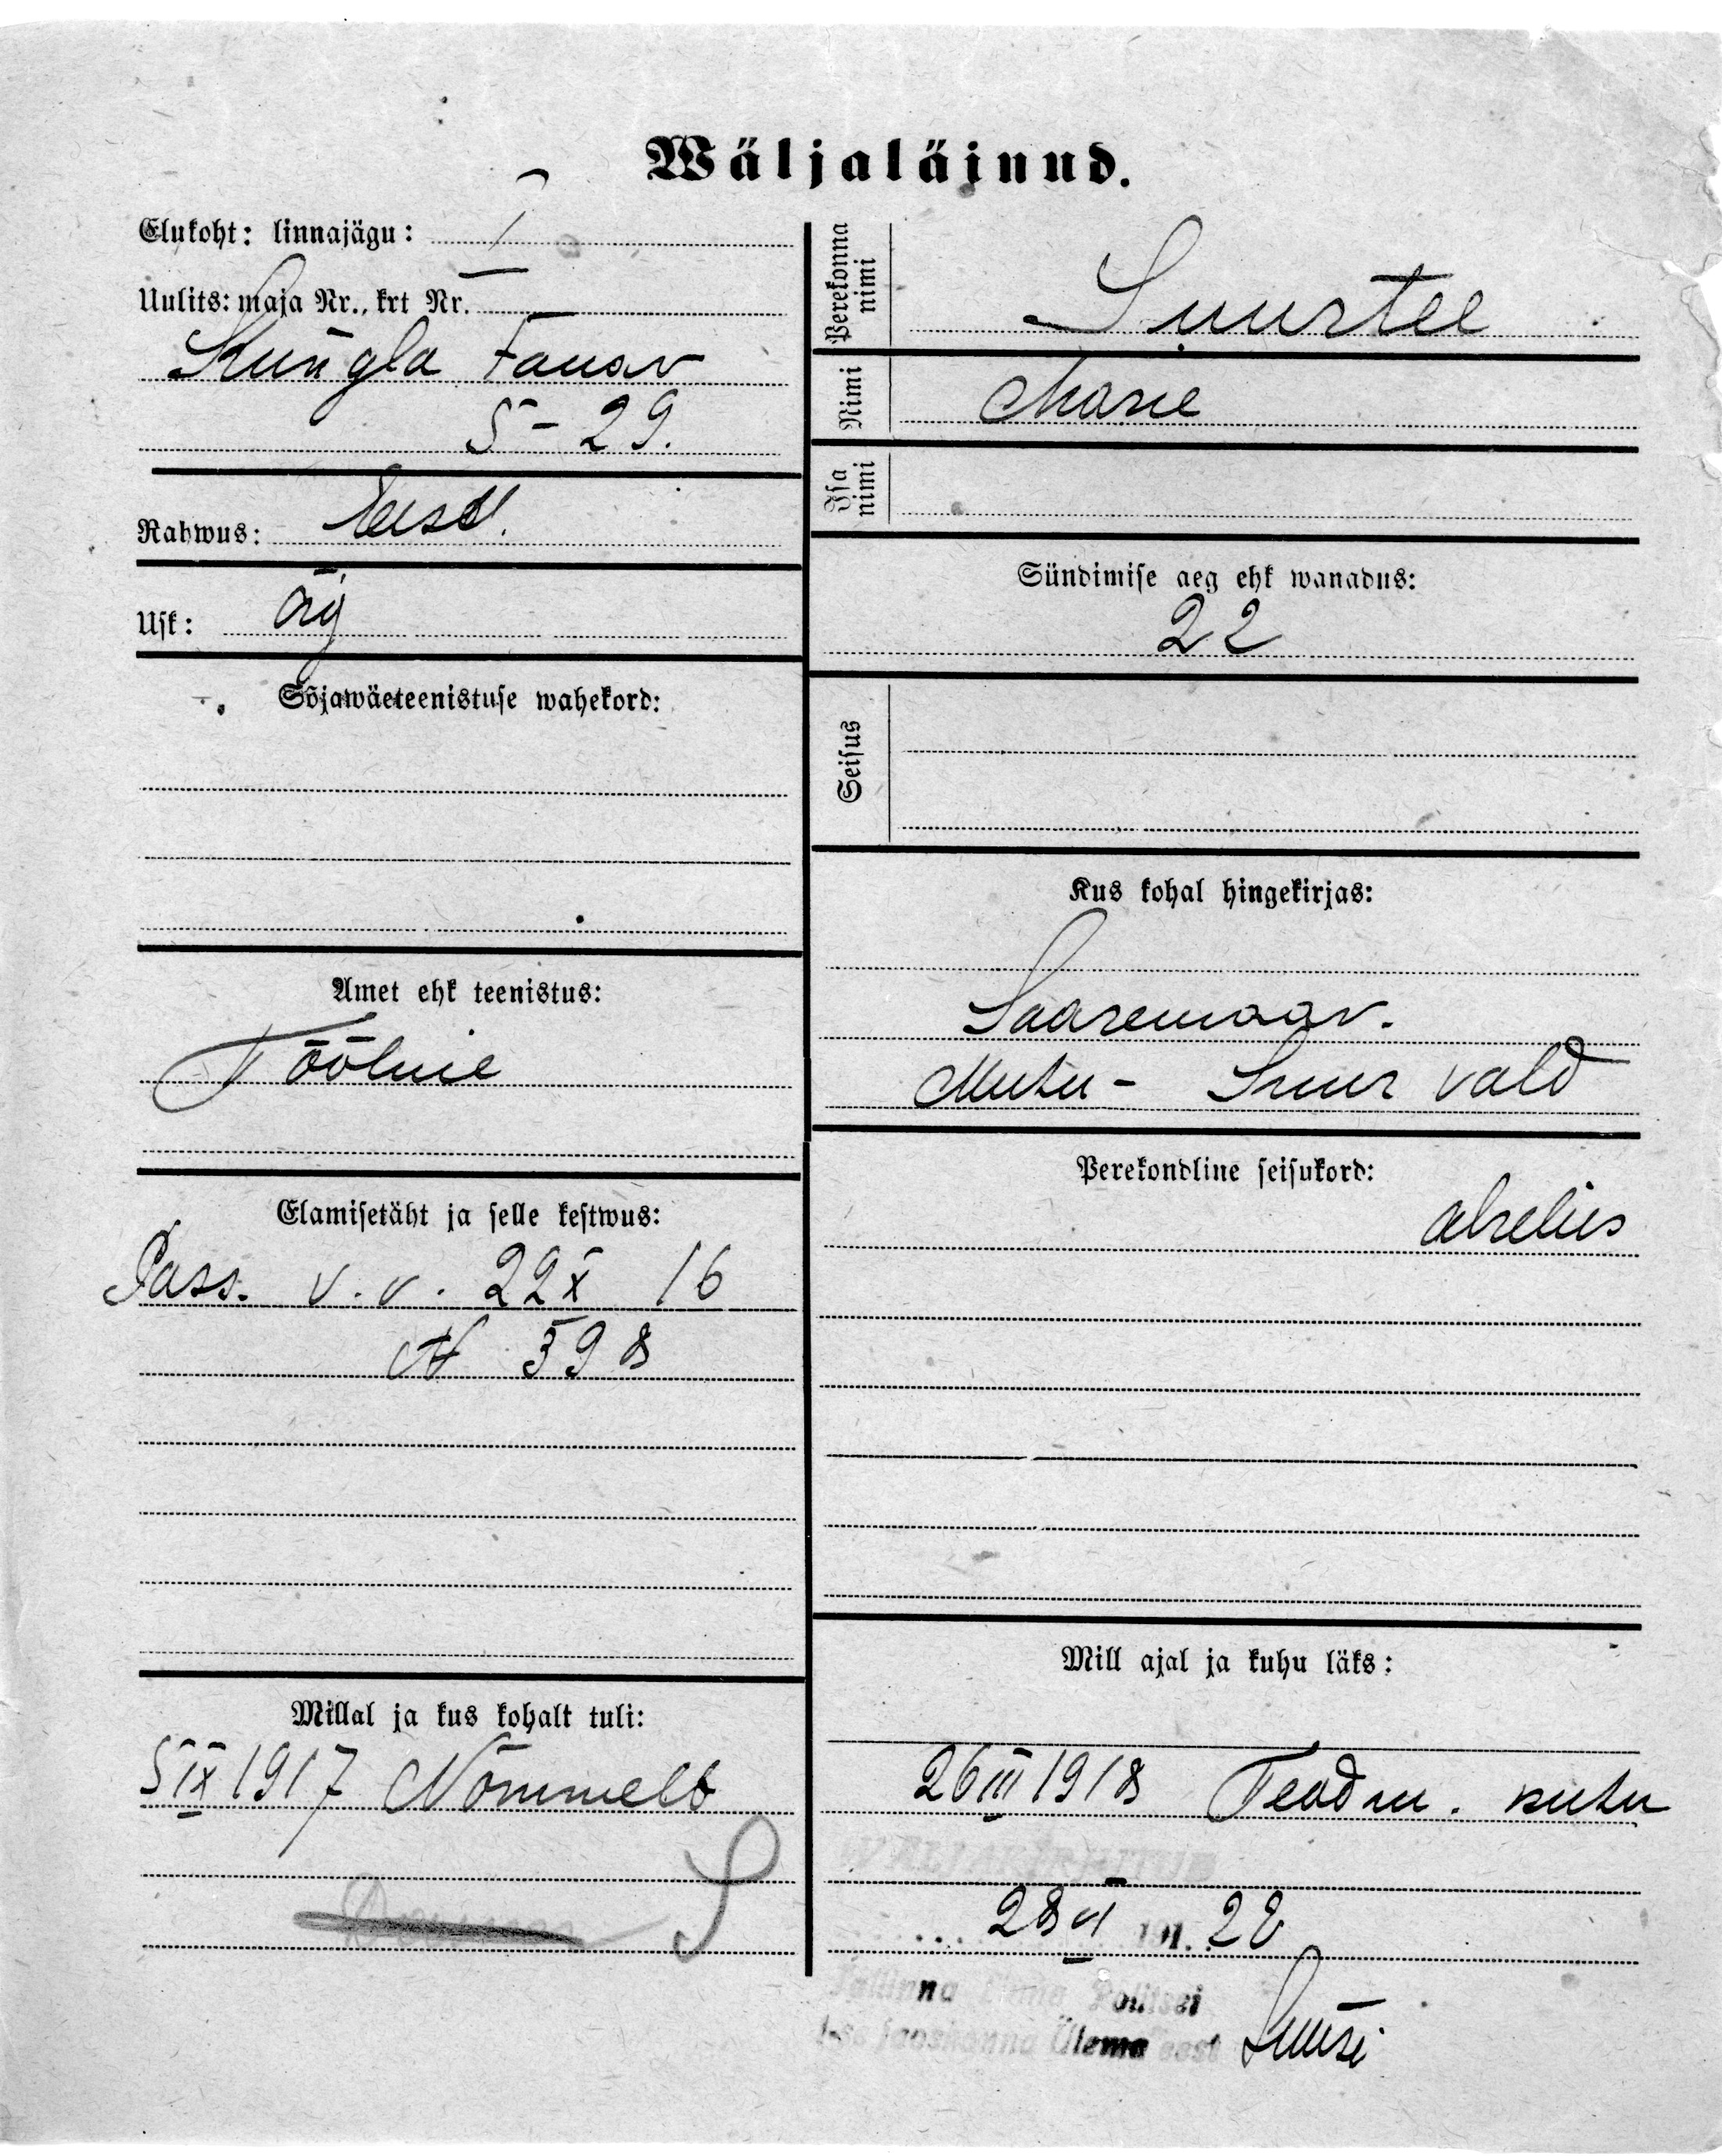 Wäljaläinud.
Elukoht: linnajägu: I
Uulits: maja Nr., krt Nr.
Kungla tänav
5 - 29.
Rahwus: Eesti.
Usk: õig
Sõjawäeteenistuse wahekord:
Amet ehk teenistus:
Tööline
Elamisetäht ja selle kestwus:
Pass. v. v. 22 X 16
N 398
Millal ja kus kohalt tuli:
5 IX 1917 Nõmmelt
S
Perekonna nimi
Suurtee
Nimi
Marie
Isa nimi
Sündimise aeg ehk wanadus:
22
Seisus
Kus kohal hingekirjas:
Saaremaav.
Muhu - Suur vald
Perekondline seisukord:
abielus
Mill ajal ja kuhu läks:
26 III 1918 Teadm. kuhu
VÄLJAKIRJUTUD
28 VI 191. 22
Tallinna Linna Politsei
1-se jaoskonna Ülema eest